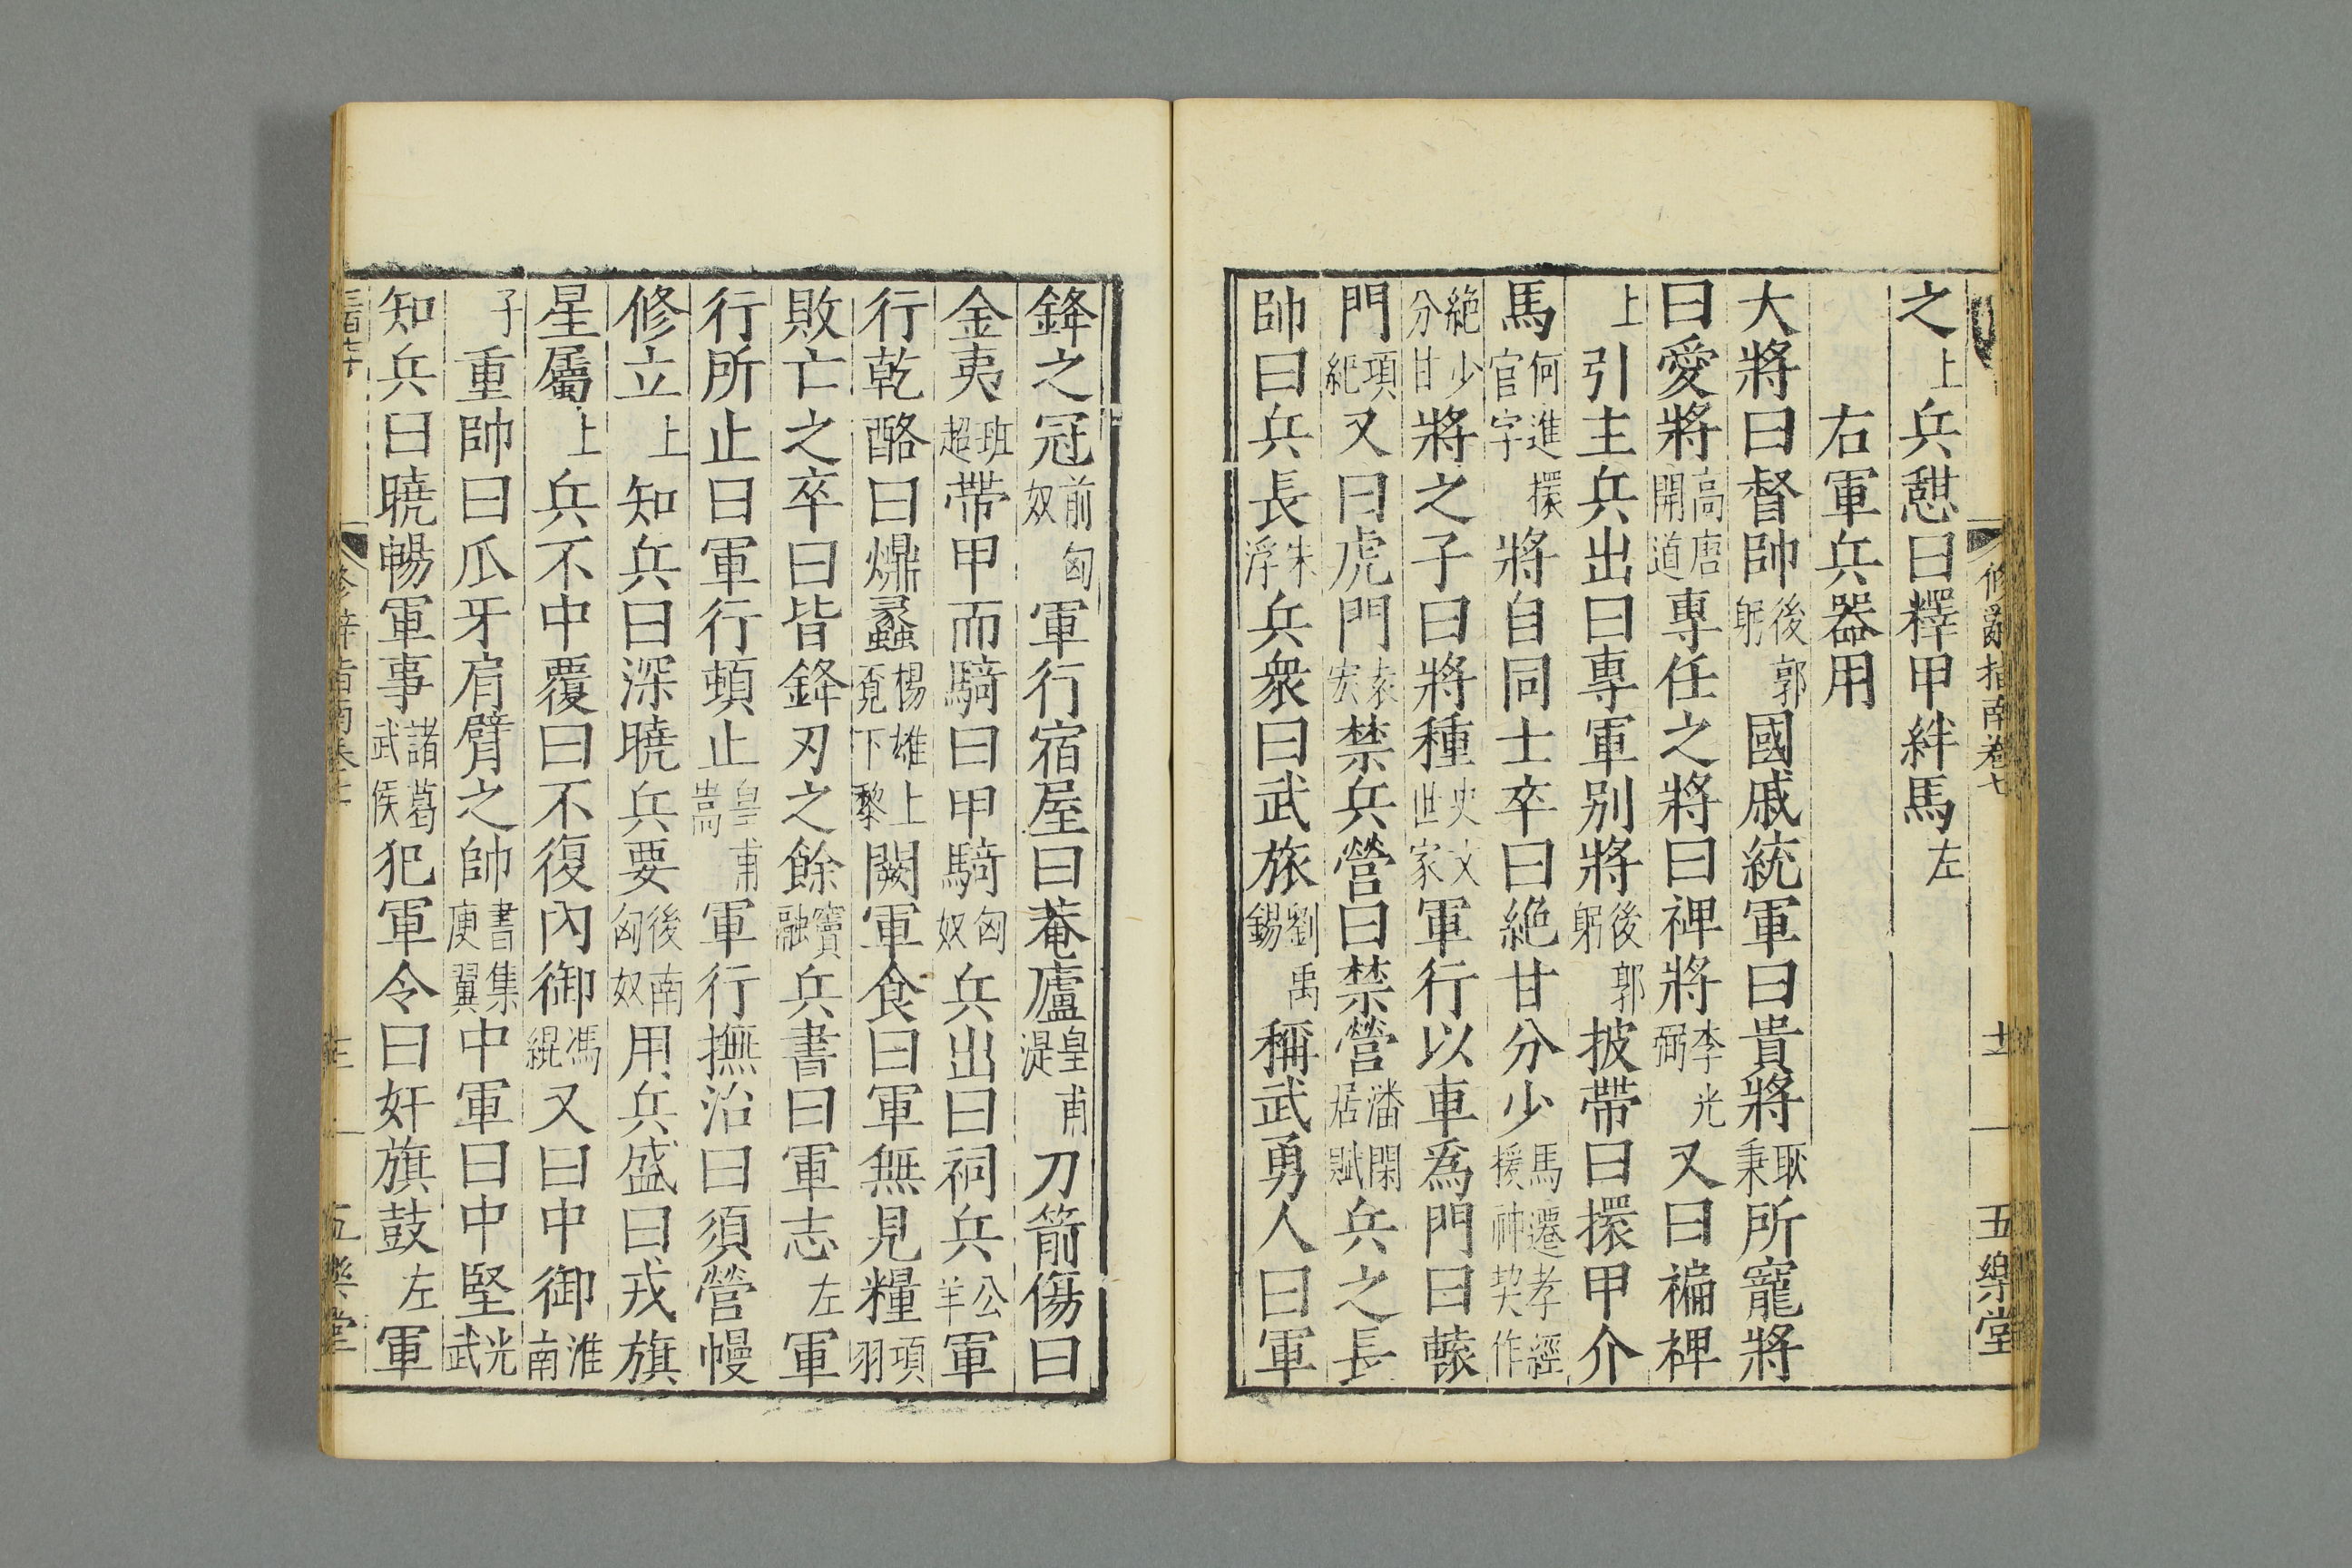 修辭指南卷七 十二 五樂堂
之上兵憇曰釋甲絆馬左
右軍兵器用
大將曰督帥後郭躬國戚統軍曰貴將耿秉所寵將
曰愛將高唐開道專任之將曰裨將李光弼又曰褊裨
上引主兵出曰專軍别將後郭躬披帶曰擐甲介
馬何進官字擐將自同士卒曰絶甘分少馬遷孝經援神契作
絶少分甘將之子曰將種史文世家軍行以車爲門曰轅
門項紀又曰虎門袁宏禁兵營曰禁營潘閑居賦兵之長
帥曰兵長朱浮兵衆曰武旅劉禹錫稱武勇人曰軍
鋒之冠前匈奴軍行宿屋曰菴廬皇甫湜刀箭傷曰
金夷班超帶甲而騎曰甲騎匈奴兵出曰祠兵公羊軍
行乾酪曰㸇蠡楊雄上覔下黎闕軍食曰軍無見糧項羽
敗亡之卒曰皆鋒刃之餘竇融兵書曰軍志左軍
行所止曰軍行頓止皇甫嵩軍行撫治曰須營幔
修立上知兵曰深曉兵要後南匈奴用兵盛曰戎旗
星屬上兵不中覆曰不復內御馮緄又曰中御淮南
子重帥曰爪牙肩臂之帥書集庾翼中軍曰中堅光武
知兵曰曉暢軍事諸葛武侯犯軍令曰奸旗鼓左軍
修辭指南卷 五樂堂